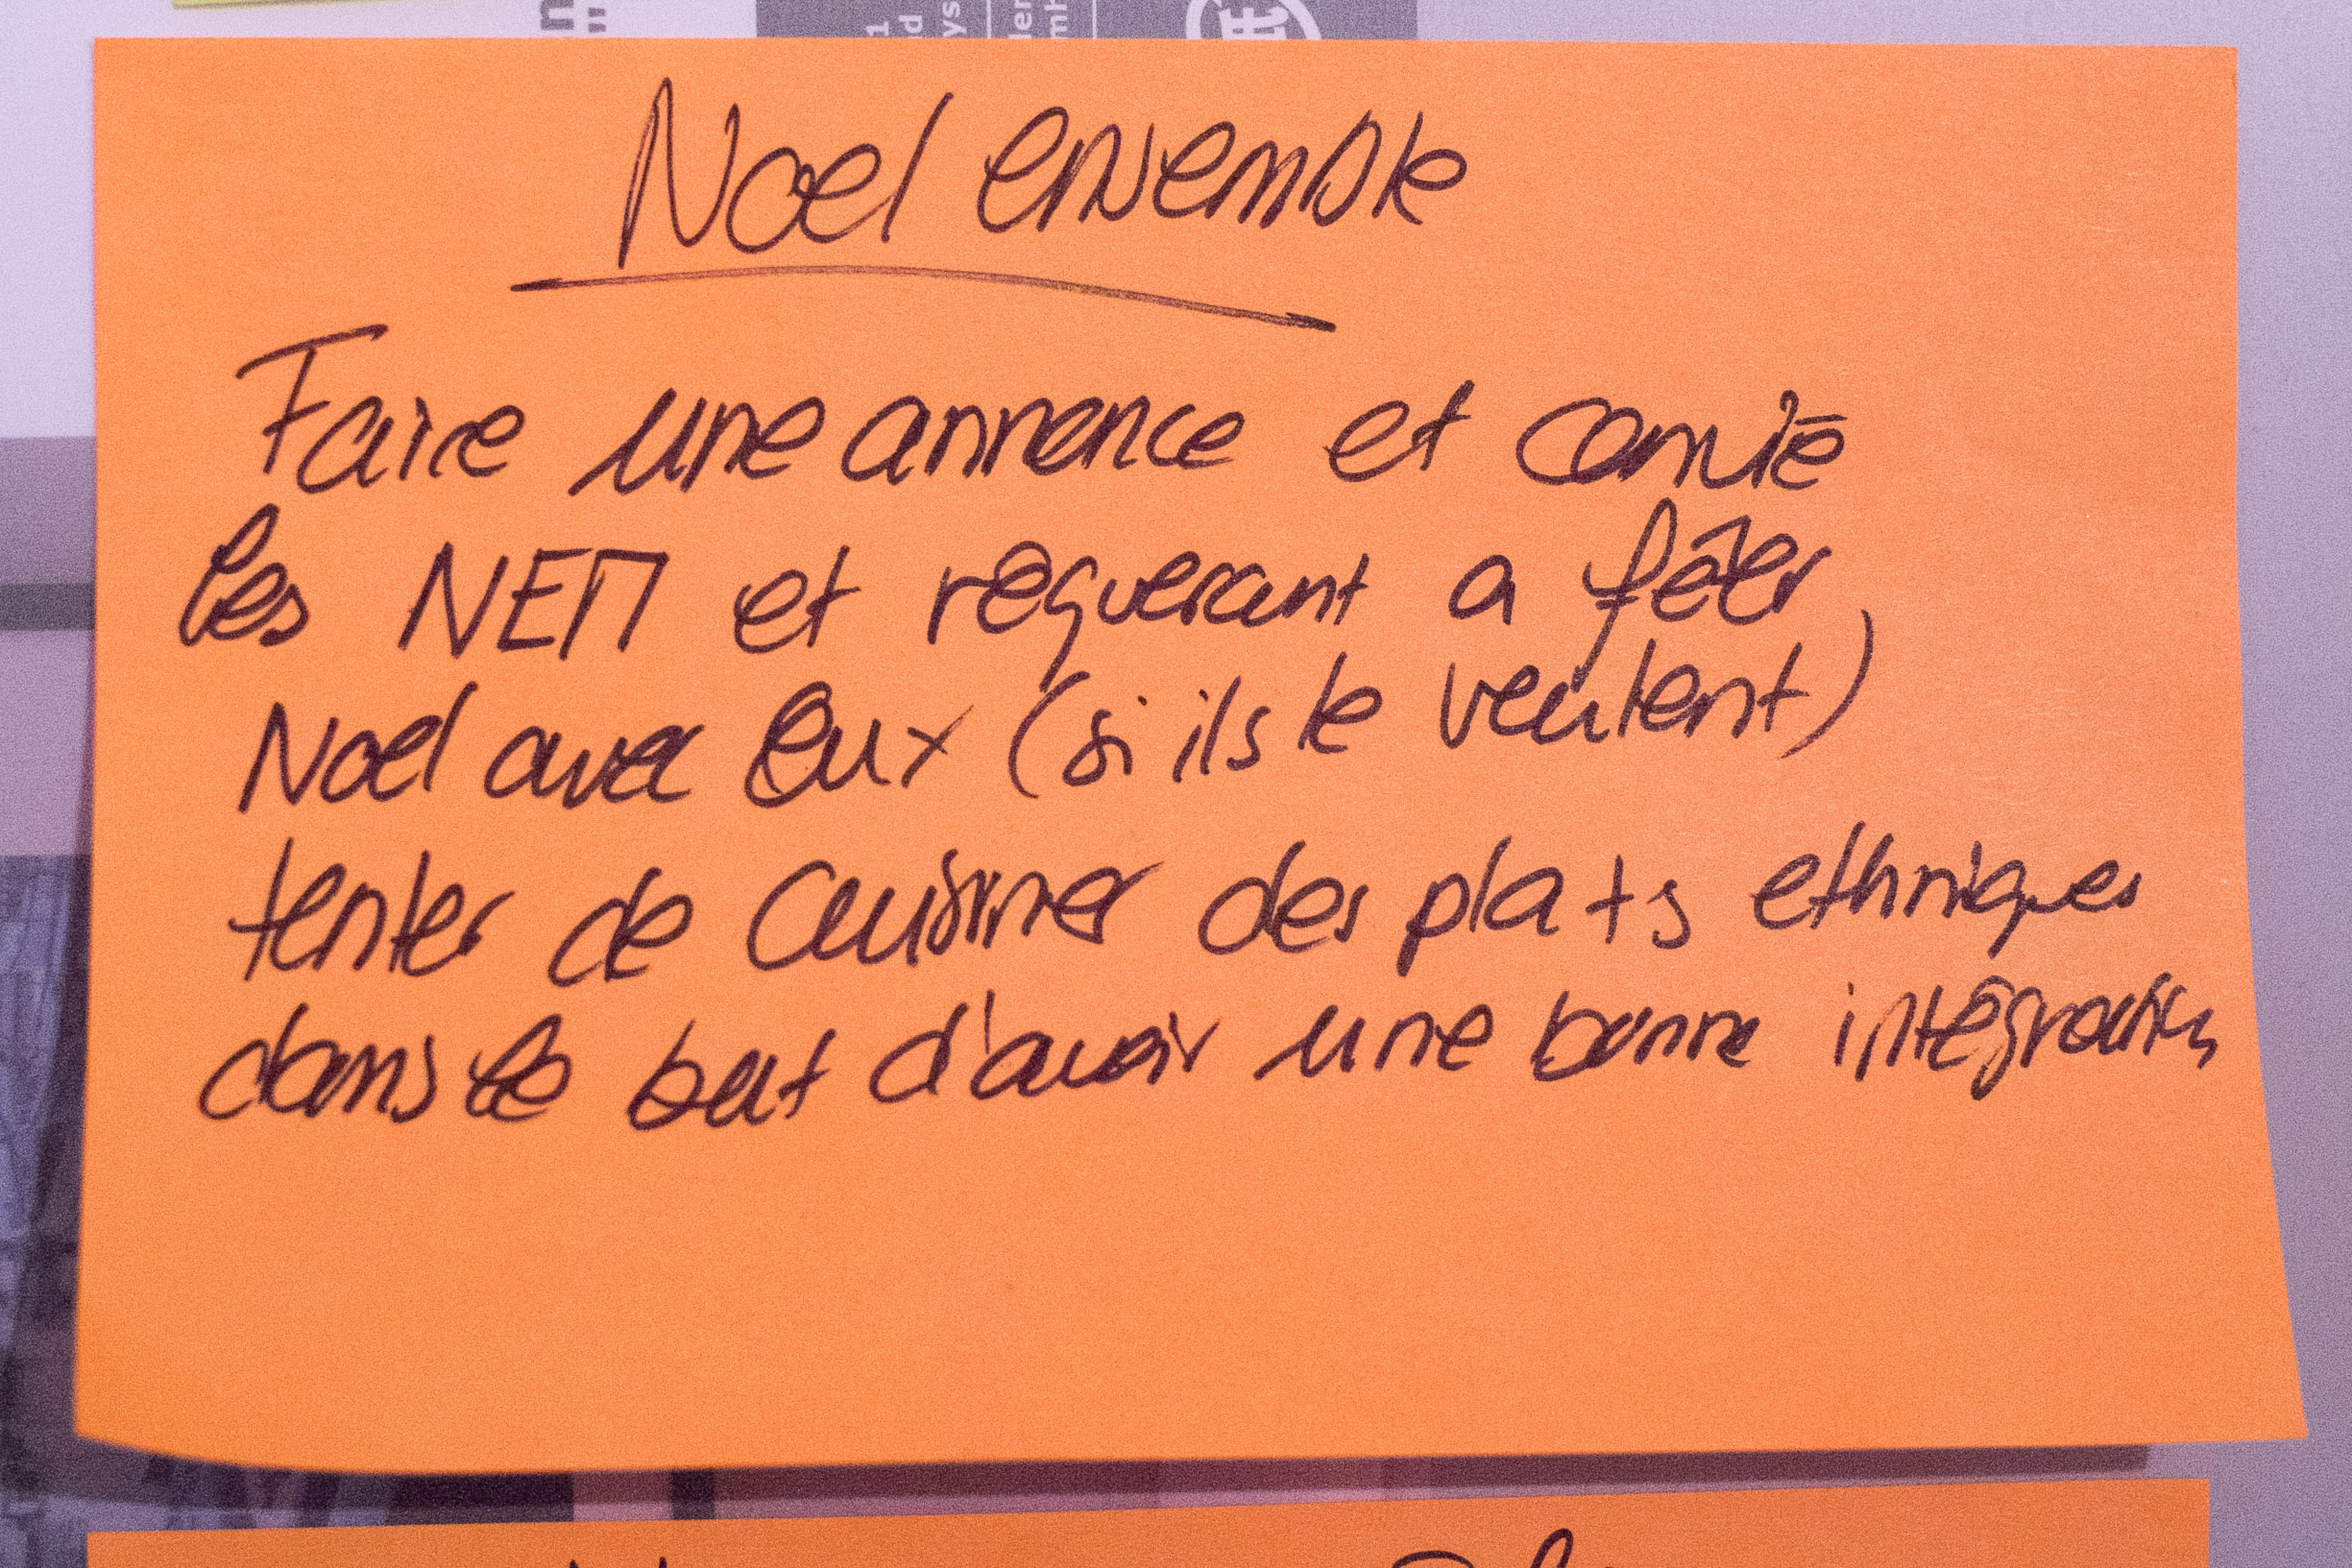 Noel ensemble
Faire une annonce et convié
les NEM et réquerant a fêter
Noel avec Eux (si ils le veulent)
tenter de cuisiner des plats ethniques
dans le but d'avoir une bonne intégration